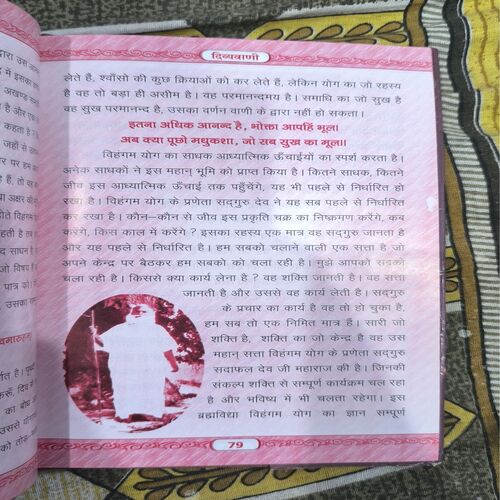 दिव्यवाणी
लेते हैं, श्वाँसों की कुछ क्रियाओं को कर लेते हैं, लेकिन योग का जो रहस्य
है वह तो बड़ा ही असीम है। वह परमानन्दमय है। समाधि का जो सुख है
वह सुख परमानन्द है, उसका वर्णन वाणी के द्वारा नहीं हो सकता।
इतना अधिक आनन्द है, भोक्ता आपहिं भूल।
अब क्या पूछो मधुकशा, जो सब सुख का मूल।।
विहंगम योग का साधक आध्यात्मिक ऊँचाईयों का स्पर्श करता है।
अनेक साधकों ने इस महान् भूमि को प्राप्त किया है। कितने साधक, कितने
जीव इस आध्यात्मिक ऊँचाई तक पहुँचेंगे, यह भी पहले से निर्धारित हो
रखा है। विहंगम योग के प्रणेता सद्गुरु देव ने यह सब पहले से निर्धारित
कर रखा है। कौन-कौन से जीव इस प्रकृति चक्र का निष्क्रमण करेंगे, कब
करेंगे, किस काल में करेंगे ? इसका रहस्य एक मात्र वह सद्गुरु जानता है
और यह पहले से निर्धारित है। हम सबको चलाने वाली एक सत्ता है जो
अपने केन्द्र पर बैठकर हम सबको चला रही है। मुझे आपको सबको
चला रही है। किससे क्या कार्य लेना है ? वह शक्ति जानती है। वह सत्ता
जानती है और उससे वह कार्य लेती है। सद्गुरु
के प्रचार का कार्य है वह तो हो चुका है,
हम सब तो एक निमित्त मात्र हैं। सारी जो
शक्ति है, शक्ति का जो केन्द्र है वह उस
महान् सत्ता विहंगम योग के प्रणेता सद्गुरु
सदाफल देव जी महाराज की है। जिनकी
संकल्प शक्ति से सम्पूर्ण कार्यक्रम चल रहा
है और भविष्य में भी चलता रहेगा। इस
ब्रह्मविद्या विहंगम योग का ज्ञान सम्पूर्ण
79